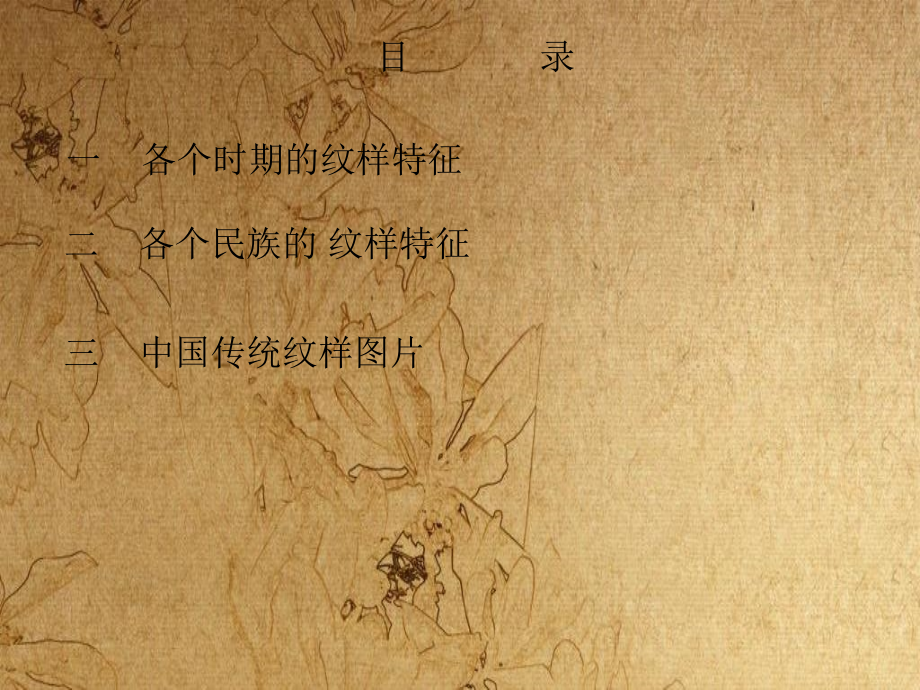 目 录
一 各个时期的纹样特征
二 各个民族的 纹样特征
三 中国传统纹样图片